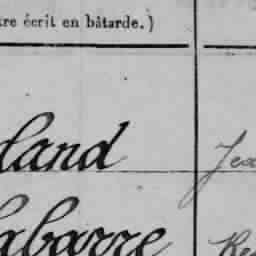 tre écrit en bâtarde.)
land Jea
abarre Re